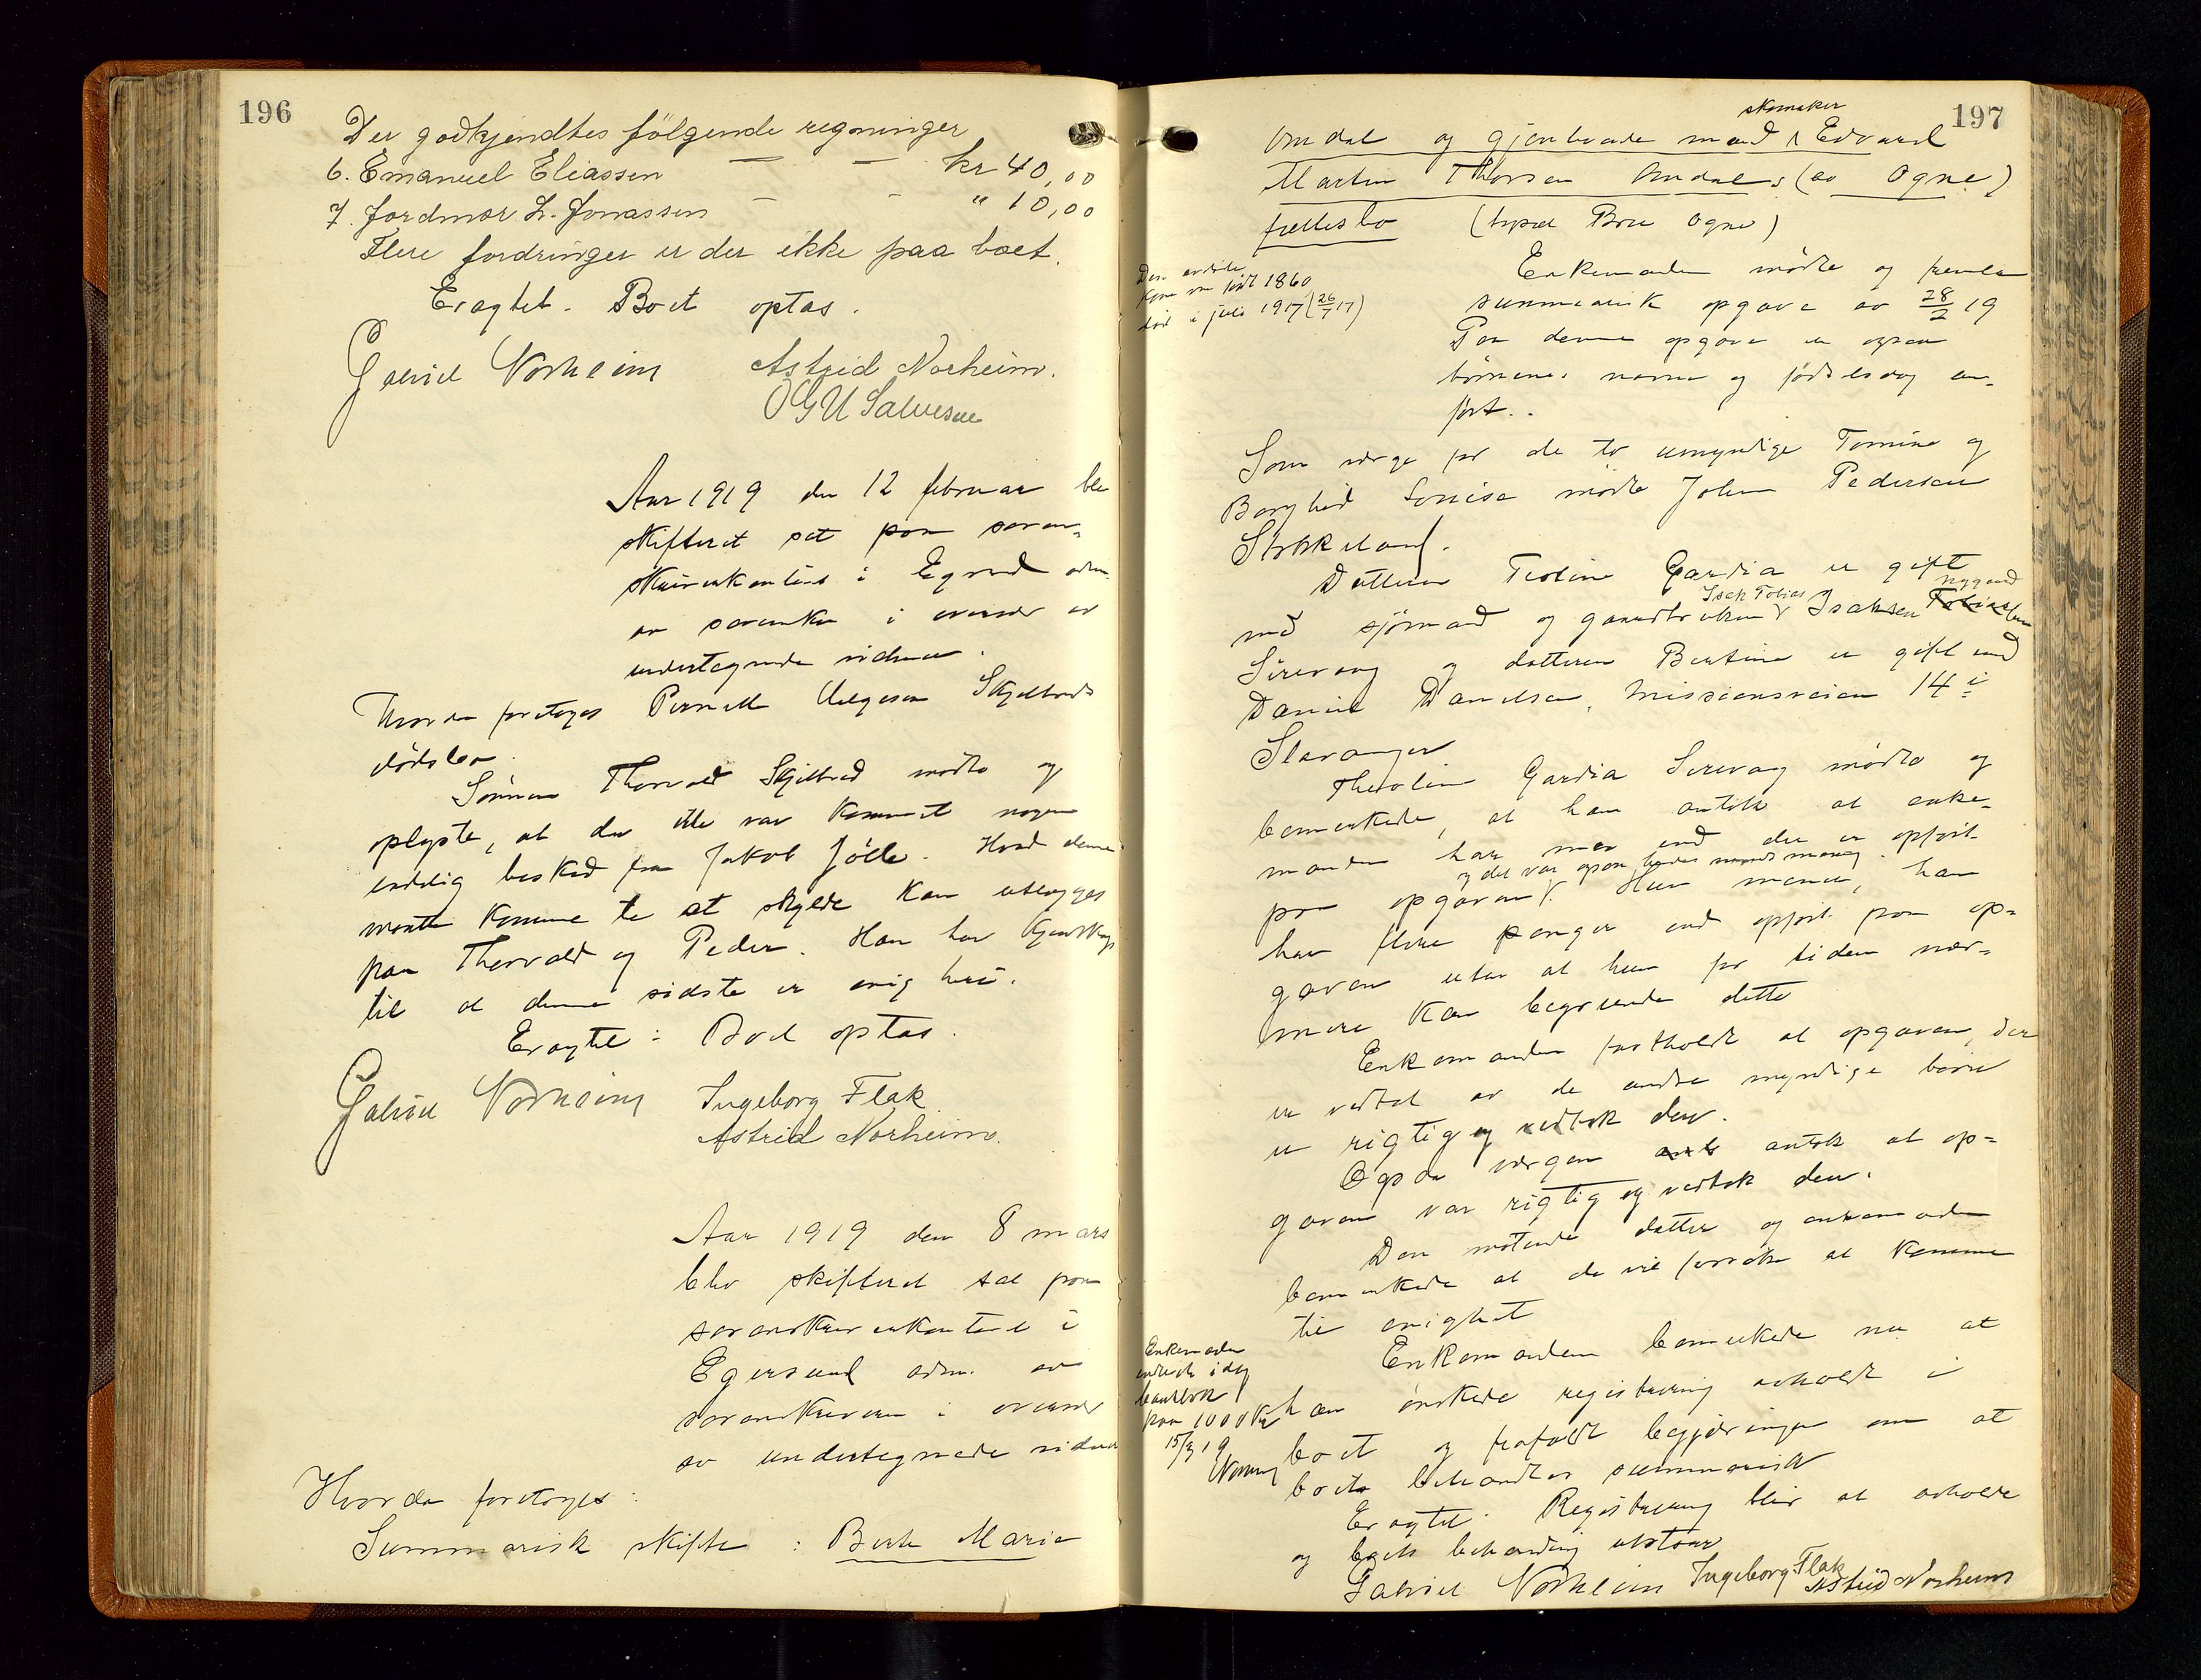 196
Der godkjendtes følgende regninger
6. Emanuel Eliassen — — kr 40,00
7. Jordmor L. Jonassen - - " 10,00
Flere fordringer er der ikke paa boet.
Eragtet. Boet optas.
Gabriel Norheim Astrid Norheim.
OGU Salvesen
Aar 1919 den 12 februar blev
skifteret sat paa soren-
skriverkontoret i Egersund adm.
av sorenskr i overvær av
undertegnede vidner.
Hvorda foretoges Pernelle Helgesen Skjelbreds
dødsbo.
Sønnen Thorvald Skjelbred mødte og
oplyste, at der ikke var kommet nogen
endelig besked fra Jakob Jølle. Hvad denne
maatte komme te at skylde kan utlægges
paa Thorvald og Peder. Han har kjendskap
til at denne sidste er enig heri.
Eragtet: Boet optas.
Gabriel Norheim Ingeborg Flak.
Astrid Norheim.
Aar 1919 den 8 mars
blev skifteret sat paa
sorenskriverkontoret i
Egersund adm. av
sorenskriveren i overvær
av undertegnede vidner
Hvorda foretoges:
Summarisk skifte: Berte Marie
197
skomaker
Omdal og gjenlevende mand Edvard
Martin Thorsen Omdals (av Ogne)
fællesbo (bopæl Bru Ogne)
Den avdøde
kone var født 1860
død i juli 1917 (26/7 17)
Enkemanden mødte og fremla
summarisk opgave av 28/2 19
Paa denne opgave er ogsaa
børnenes navne og fødselsdag an-
ført.
Som verge for de to umyndige Tomine og
Borghild Louise mødte Johan Pedersen
Stokkeland.
Datteren Teoline Gardia er gift
Isak Tobias nygaard
med sjømand og gaardbruker Isaksen Tobiassen
Sirevaag og datteren Bertine er gift med
Daniel Danielsen, Missionsveien 14 i
Stavanger
Theoline Gardia Sirevaag mødte og
bemerkede, at han antok at enke-
manden har mer end der er opført
og det var ogsaa hendes mands mening
paa opgaven. Hun mener, han
har flere penger end opført paa op-
gaven uten at hun for tiden nær-
mere kan begrunde dette
Enkemanden fastholdt at opgaven, der
er vedtat av de andre myndige barn
er rigtig og vedtok den.
Ogsaa vergen ant antok at op-
gaven var rigtig og vedtok den.
Den møtende datter og enkemanden
bemerkede at de vil forsøke at komme
til enighet
Enkemanden bemerkede nu at
Enkemanden
indleverte idag
bankbok
paa 1000 Kr
15/3 19
Norheim
han ønskede registrering avholdt i
boet og frafaldt begjæringen om at
boet behandles summarisk
Eragtet. Registrering blir at avholde
og boets behandling utstaar
Gabriel Norheim Ingeborg Flak Astrid Norheim